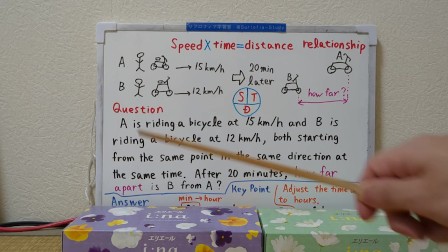 Speed×time=distance relationship
A → 15 km/h
20 min later
A
B → 12 km/h
B
how far?
S T
D
Question
A is riding a bicycle at 15 km/h and B is
riding a bicycle at 12 km/h, both starting
from the same point in the same direction at
the same time. After 20 minutes, far
apart is B from A?
Key Point
Adjust the time
to hours.
Answer
min → hour
i:na
i:na